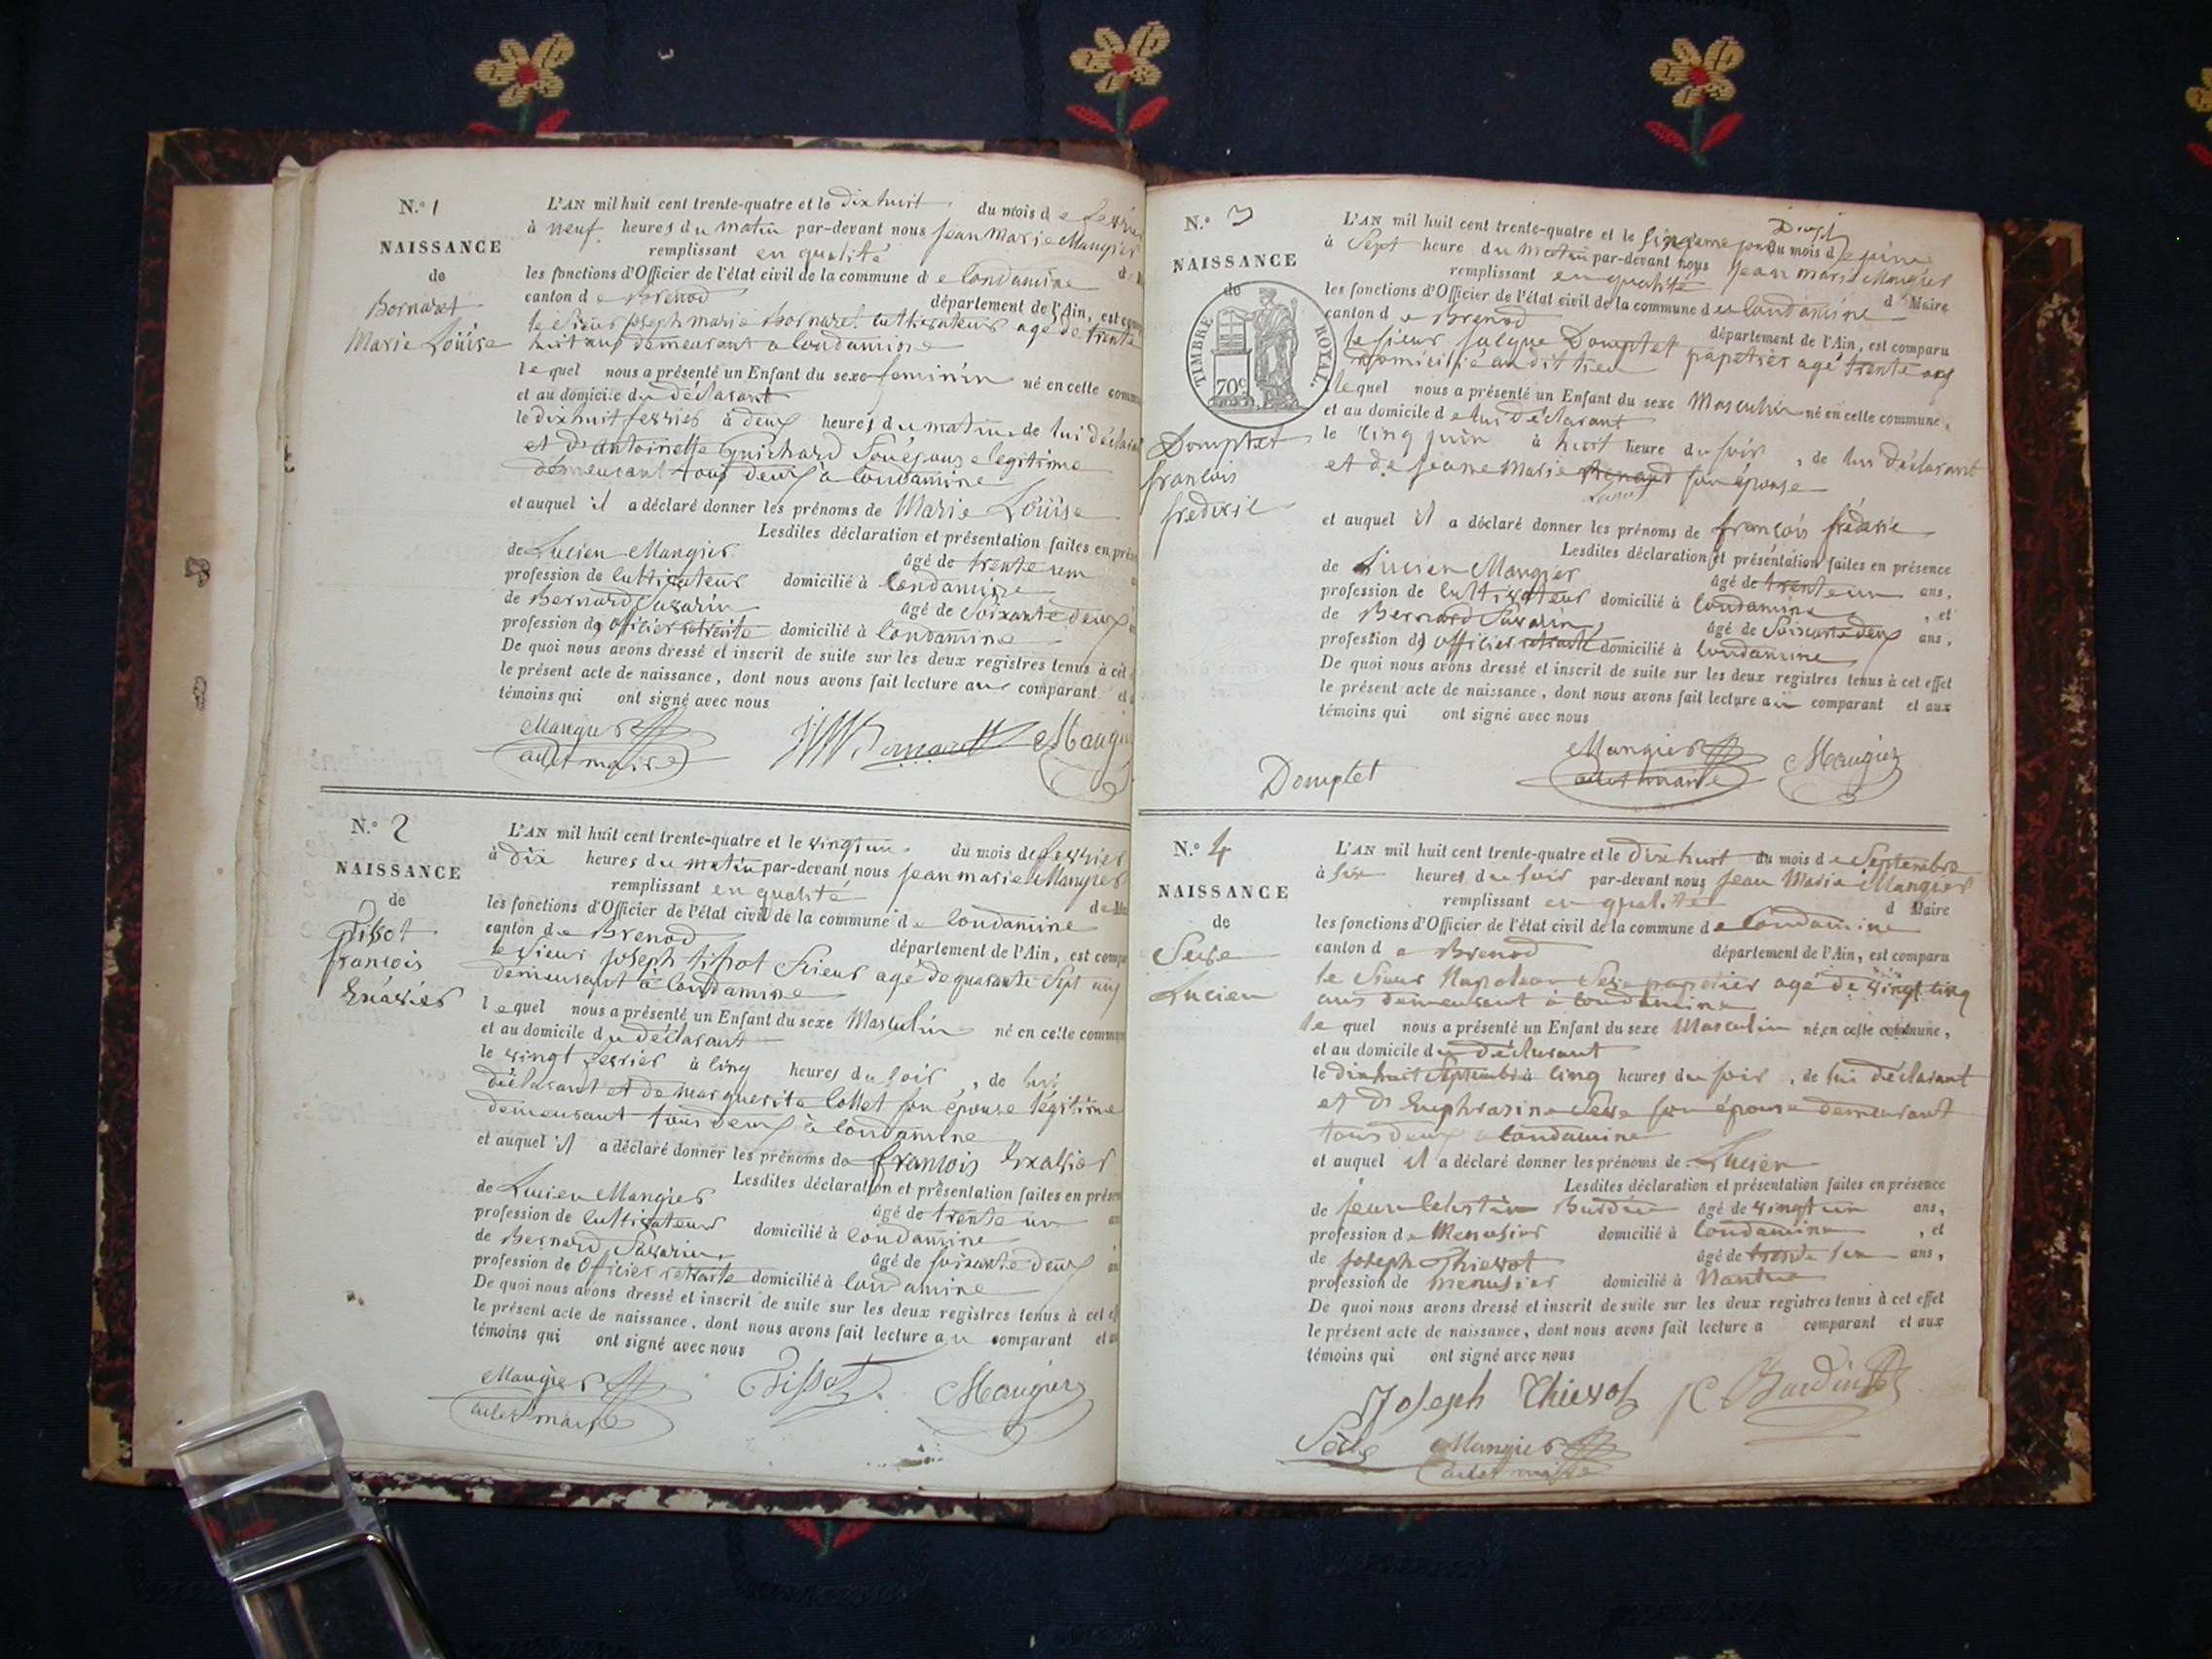 N.o 1
NAISSANCE
de
Bornaret
Marie Loüise
L'AN mil huit cent trente-quatre et le dix huit du mois de fevrier
à neuf heures du matin par-devant nous jean marie Mangier
remplissant en qualité
les fonctions d'Officier de l'état civil de la commune de Condamine
canton de Brenod département de l'Ain, est
le Sieur joseph marie Bornaret cultivateur agé de trente
huit ans demeurant a Condamine
lequel nous a présenté un Enfant du sexe feminin né en cette
et au domicile du déclarant
le dix huit fevrier à deux heures du matin de lui
et d'antoinette Guichard Son épouse legitime
demeurant tous deux à Condamine
et auquel il a déclaré donner les prénoms de Marie Loüise
Lesdites déclaration et présentation faites en
de Lucien Mangier âgé de trente un
profession de Cultivateur domicilié à Condamine
de Bernard Savarin âgé de Soixante deux
profession de officier retraité domicilié à Condamine
De quoi nous avons dressé et inscrit de suite sur les deux registres tenus à cet
le présent acte de naissance, dont nous avons fait lecture aux comparant et
témoins qui ont signé avec nous
Mangier
adet maire
N.o 2
NAISSANCE
de
Tissot
françois
Exavier
L'AN mil huit cent trente-quatre et le vingt un du mois de fevrier
à dix heures du matin par-devant nous jean marie Mangier
remplissant en qualité
les fonctions d'Officier de l'état civil de la commune de Condamine
canton de Brenod département de l'Ain, est
le Sieur joseph tissot Scieur agé de quarante Sept ans
demeurant à Condamine
lequel nous a présenté un Enfant du sexe Masculin né en cette
et au domicile du déclarant
le vingt fevrier à Cinq heures du soir, de lui
déclarant et de marguerite Collet son épouse légitime
demeurant tous deux à Condamine
et auquel il a déclaré donner les prénoms de françois Exavier
Lesdites déclaration et présentation faites en
de Lucien Mangier âgé de trente un
profession de Cultivateur domicilié à Condamine
de Bernard Savarin âgé de soixante deux
profession de officier retraité domicilié à Condamine
De quoi nous avons dressé et inscrit de suite sur les deux registres tenus à cet
le présent acte de naissance, dont nous avons fait lecture au comparant et
témoins qui ont signé avec nous
Mangier Tissot Mangier
adet maire
N.o 3
NAISSANCE
de
TIMBRE ROYAL.
70c
Domptet
françois
frederic
L'AN mil huit cent trente-quatre et le Sixieme jour du mois de juin
à Sept heure du matin par-devant nous jean marie Mangier
remplissant en qualité d Maire
les fonctions d'Officier de l'état civil de la commune de Condamine
canton de Brenod département de l'Ain, est comparu
le sieur jacque Domptet papetier agé trente ans
domicilié audit lieu
lequel nous a présenté un Enfant du sexe Masculin né en cette commune,
et au domicile de lui Déclarant
le Cinq juin à huit heure du soir, de lui déclarant
et de jeane Marie son épouse
et auquel il a déclaré donner les prénoms de françois frederic
Lesdites déclaration et présentation faites en présence
de Lucien Mangier âgé de trente un ans,
profession de Cultivateur domicilié à Condamine, et
de Bernard Savarin, âgé de Soixante deux ans,
profession de officier retraité domicilié à Condamine
De quoi nous avons dressé et inscrit de suite sur les deux registres tenus à cet effet
le présent acte de naissance, dont nous avons fait lecture au comparant et aux
témoins qui ont signé avec nous
Mangier Mangier
Domptet adet maire
N.o 4
NAISSANCE
de
Seve
Lucien
L'AN mil huit cent trente-quatre et le Dix huit du mois de Septembre
à six heures du soir par-devant nous jean Marie Mangier
remplissant en qualité d Maire
les fonctions d'Officier de l'état civil de la commune de Condamine
canton de Brenod département de l'Ain, est comparu
le Sieur Napoleon Seve papetier agé de vingt cinq
ans demeurant à Condamine
lequel nous a présenté un Enfant du sexe Masculin né en cette commune,
et au domicile du déclarant
le dix huit Septembre à Cinq heures du soir, de lui déclarant
et d' Euphrasine Seve son épouse demeurant
tous deux a Condamine
et auquel il a déclaré donner les prénoms de Lucien
Lesdites déclaration et présentation faites en présence
de jean Celestin Burdin âgé de vingt un ans,
profession de Menusier domicilié à Condamine, et
de joseph Thievot âgé de trente six ans,
profession de menusier domicilié à Nantua
De quoi nous avons dressé et inscrit de suite sur les deux registres tenus à cet effet
le présent acte de naissance, dont nous avons fait lecture a comparant et aux
témoins qui ont signé avec nous
Joseph Thievot JC Burdin
Sève Mangier
adet maire